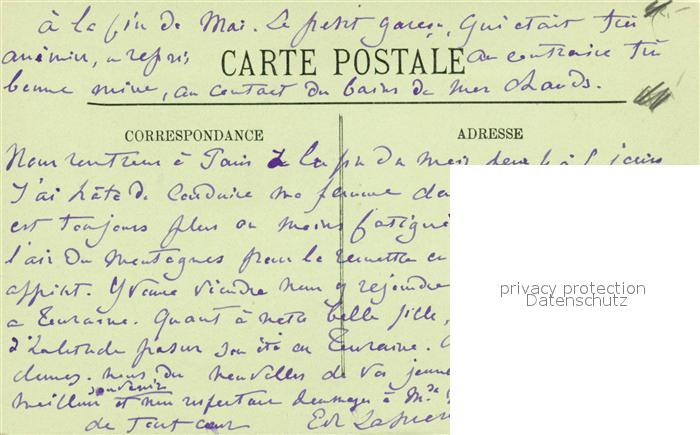 à la fin de Mai. Le petit garçon, qui était très
anémié, a repris
CARTE POSTALE
au contraire très
bonne mine, au contact du bains de mer chauds.
CORRESPONDANCE
ADRESSE
Nous rentrerons à Paris à la fin du mois pour 4 à 5 jours
J'ai hâte de conduire ma femme
est toujours plus ou moins fatiguée
l'air du montagnes pour la remettre en
appétit. Yvonne viendra nous y rejoindre
Touraine. Quant à notre belle fille,
d'habitude passer son été en Touraine.
donnez-nous du nouvelles de vos jeunes
souvenirs
meilleurs et mes respectueux hommages à Mde
de tout cœur
privacy protection
Datenschutz